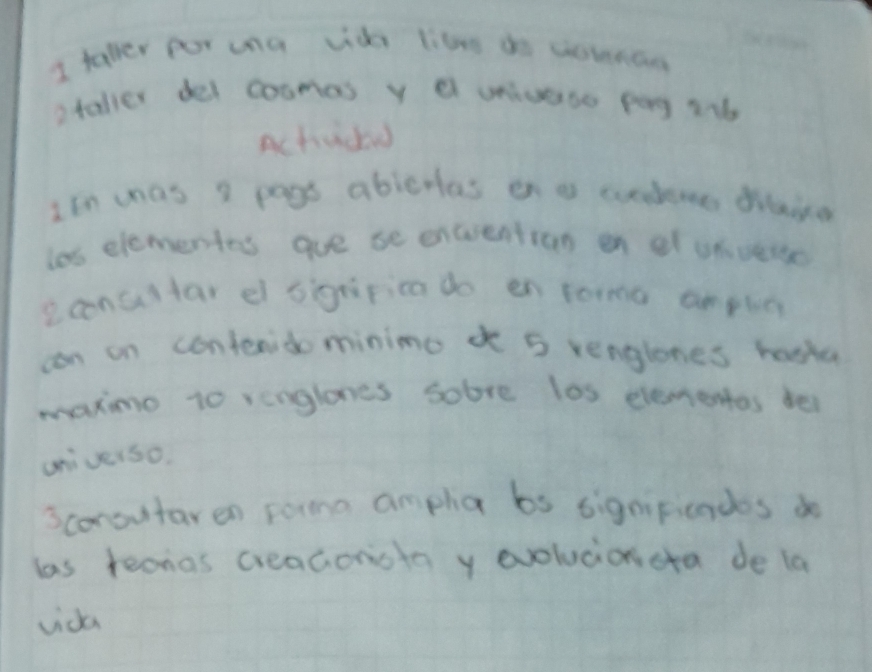 1 taller por una vida libre de violencia
2 taller del cosmos y el universo pag 216
Actividad
1 En unas 2 pags abiertas en el cuaderno dibujar
los elementos que se encuentran en el universo
2 consultar el significado en forma amplia
con un contenido minimo de 5 renglones hasta
maximo 10 renglones sobre los elementos del
universo.
3 consultar en forma amplia los significados de
las teorias creacionista y evolucionista de la
vida